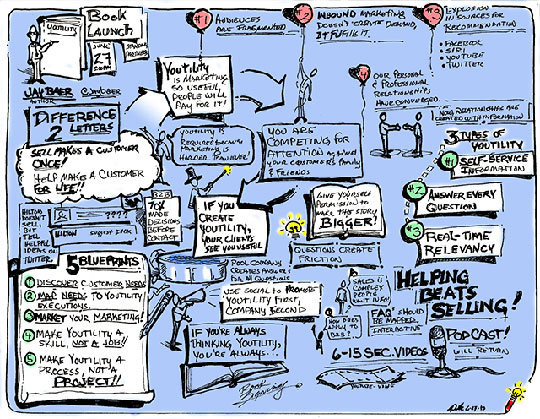 BOOK
LAUNCH
YOUTILITY
JUNE
27
JAY BAER @JAYBAER
AUTHOR
DIFFERENCE
2 LETTERS
SELL MAKES A CUSTOMER
ONCE!
HELP MAKES A CUSTOMER
FOR LIFE!!
HILTON
&
????
HILTON
IDEAS ON
TWITTER
B2B
70%
MADE
DECISIONS
BEFORE
CONTACT
5 BLUEPRINTS
1 DISCOVER CUSTOMER NEEDS
2 MAP NEEDS TO YOUTILITY
EXECUTIONS
3 MARKET YOUR MARKETING!
4 MAKE YOUTILITY A
SKILL, NOT A JOB!!
5 MAKE YOUTILITY A
PROCESS, NOT A
PROJECT!!
#1
AUDIENCES
ARE FRAGMENTED
YOUTILITY
IS MARKETING
SO USEFUL,
PEOPLE WILL
PAY FOR IT!
YOUTILITY IS
REQUIRED BECAUSE
MARKETING IS
HARDER
IF YOU
CREATE
YOUTILITY,
YOUR CLIENTS
SEE YOU USEFUL
POOL COMPANY
CREATES
USE SOCIAL TO PROMOTE
YOUTILITY FIRST,
COMPANY SECOND
IF YOU'RE ALWAYS
THINKING YOUTILITY,
YOU'RE ALWAYS...
INBOUND MARKETING
DOESN'T CREATE DEMAND,
IT FULFILLS IT.
YOU ARE
COMPETING FOR
ATTENTION AGAINST
YOUR CUSTOMER'S FAMILY
& FRIENDS
GIVE YOURSELF
PERMISSION TO
MAKE THE STORY
BIGGER!
QUESTIONS CREATE
FRICTION
OUR PERSONAL
& PROFESSIONAL
RELATIONSHIPS
HAVE CONVERGED.
EXPLOSION
IN SOURCES FOR
RECOMMENDATION
- FACEBOOK
- SIRI
- YOUTUBE
- TWITTER
NOW, RELATIONSHIPS ARE
CREATED WITH INFORMATION
3 TYPES OF
YOUTILITY
#1 SELF-SERVICE
INFORMATION
#2
ANSWER EVERY
QUESTION
#3
REAL-TIME
RELEVANCY
HELPING
BEATS
SELLING!
FAQ'S
SHOULD
BE MAPPED,
INTERACTIVE
6-15 SEC. VIDEOS
PODCAST!
WILL RETURN